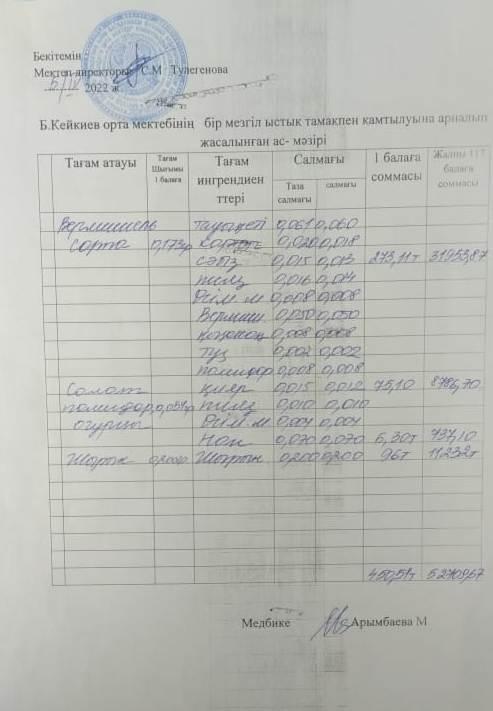 Бекітемін
Мектеп директоры С.М Тулегенова
2022 ж.
Б.Кейкиев орта мектебінің бір мезгіл ыстық тамақпен қамтылуына арналып
жасалынған ас- мәзірі
Тағам атауы Тағам Шығымы 1 балаға Тағам ингрендиен ттері Салмағы 1 балаға соммасы Жалпы 117 балаға соммасы
Таза салмағы салмағы
Вермишель Тауық еті 0,061 0,060
сорпа 0,173гр 0,020 0,018
сәбіз 0,015 0,013 273,11т 31953,87
пияз 0,016 0,014
Өсім.м 0,008 0,008
Вермиш 0,050 0,050
0,008 0,008
тұз 0,002 0,002
помидор 0,008 0,008
Салат қияр 0,015 0,012 75,10 8786,70
помидор, 0,051гр пияз 0,010 0,010
огурцы Өсім.м 0,004 0,004
Нан 0,070 0,070 6,30т 737,10
0,200 0,200 96т 11232т
450,51т 52709,67
Медбике Арымбаева М